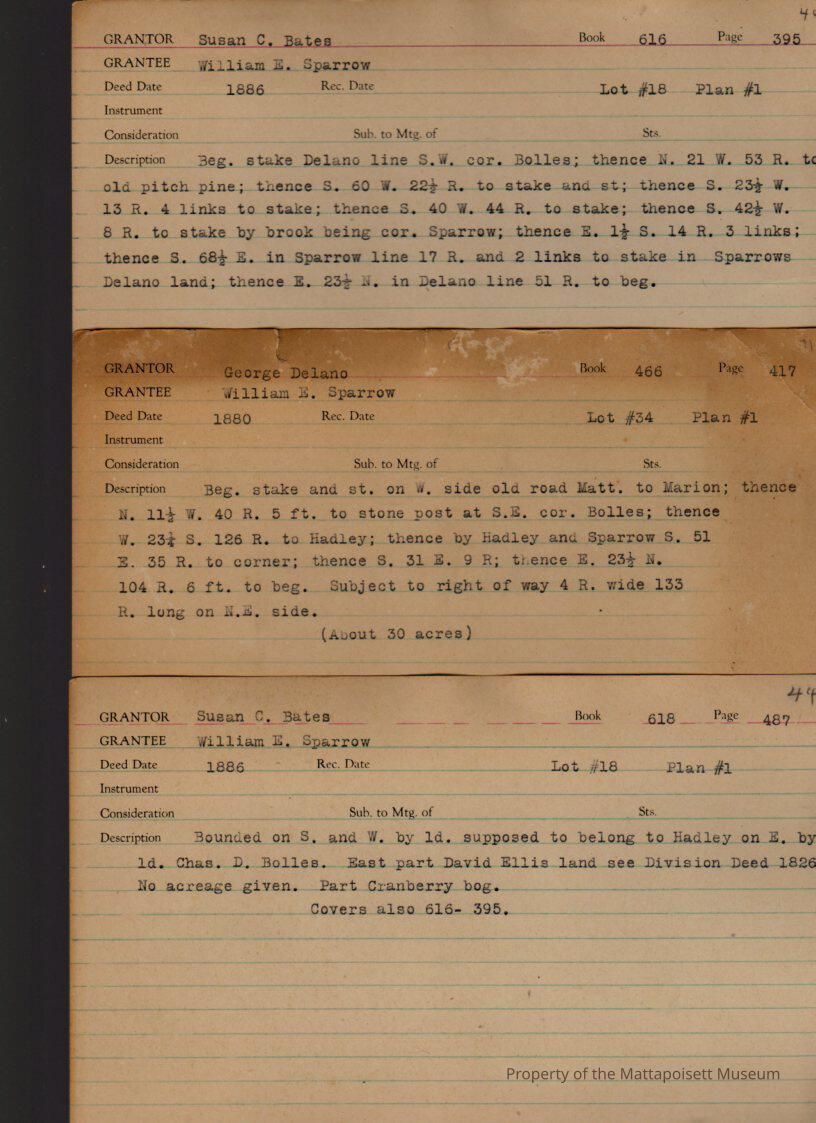 GRANTOR Susan C. Bates Book 616 Page 395
GRANTEE William E. Sparrow
Deed Date 1886 Rec. Date Lot #18 Plan #1
Instrument
Consideration Sub. to Mtg. of Sts.
Description Beg. stake Delano line S.W. cor. Bolles; thence N. 21 W. 53 R. to
old pitch pine; thence S. 60 W. 22½ R. to stake and st; thence S. 23½ W.
13 R. 4 links to stake; thence S. 40 W. 44 R. to stake; thence S. 42½ W.
8 R. to stake by brook being cor. Sparrow; thence E. 1½ S. 14 R. 3 links;
thence S. 68½ E. in Sparrow line 17 R. and 2 links to stake in Sparrows
Delano land; thence E. 23½ N. in Delano line 51 R. to beg.
GRANTOR George Delano Book 466 Page 417
GRANTEE William E. Sparrow
Deed Date 1880 Rec. Date Lot #34 Plan #1
Instrument
Consideration Sub. to Mtg. of Sts.
Description Beg. stake and st. on W. side old road Matt. to Marion; thence
N. 11½ W. 40 R. 5 ft. to stone post at S.E. cor. Bolles; thence
W. 23¾ S. 126 R. to Hadley; thence by Hadley and Sparrow S. 51
E. 35 R. to corner; thence S. 31 E. 9 R; thence E. 23½ N.
104 R. 6 ft. to beg. Subject to right of way 4 R. wide 133
R. long on N.E. side.
(About 30 acres)
44
GRANTOR Susan C. Bates Book 618 Page 487
GRANTEE William E. Sparrow
Deed Date 1886 Rec. Date Lot #18 Plan #1
Instrument
Consideration Sub. to Mtg. of Sts.
Description Bounded on S. and W. by ld. supposed to belong to Hadley on E. by
ld. Chas. D. Bolles. East part David Ellis land see Division Deed 1826
No acreage given. Part Cranberry bog.
Covers also 616- 395.
Property of the Mattapoisett Museum